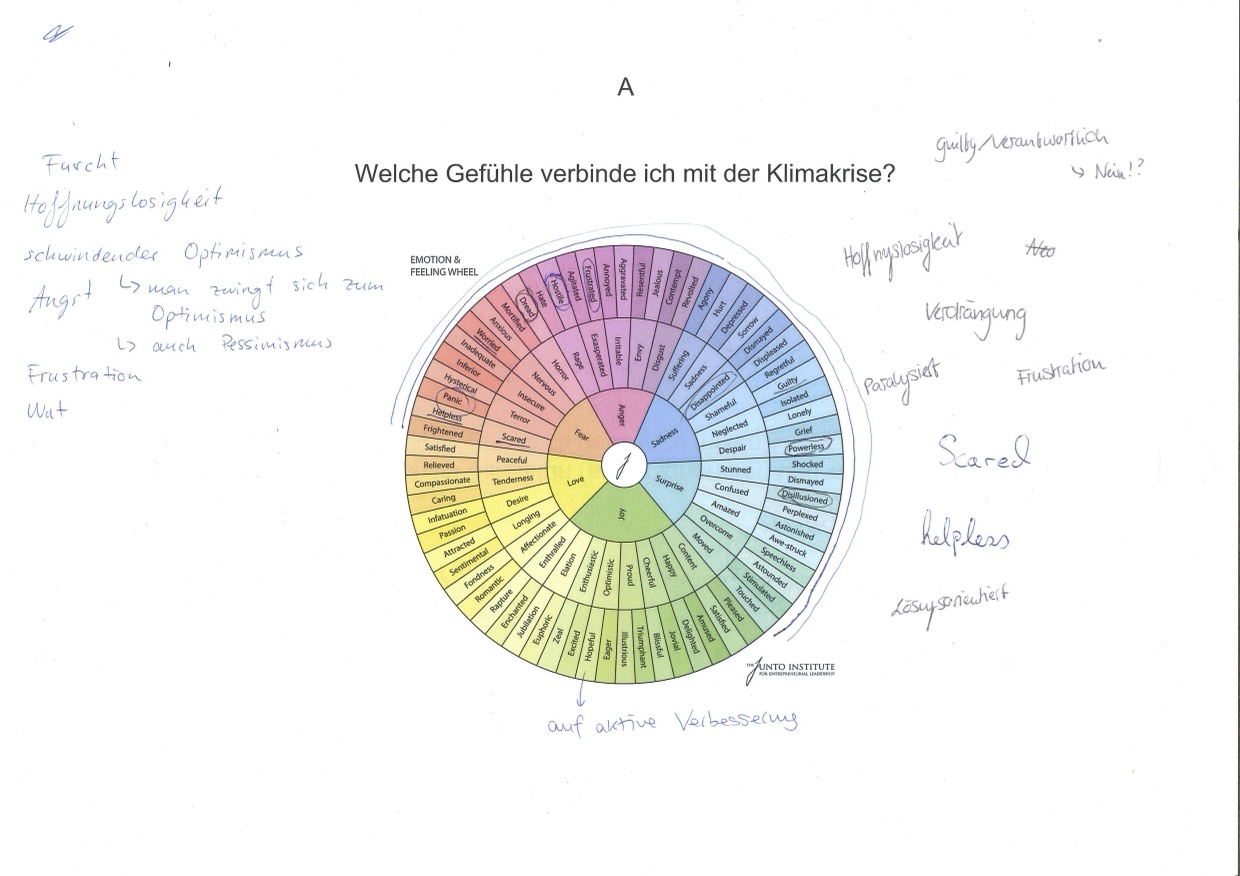 A
Welche Gefühle verbinde ich mit der Klimakrise?
Furcht
Hoffnungslosigkeit
schwindender Optimismus
↳ man zwingt sich zum
Optimismus
↳ auch Pessimismus
Angst
Frustration
Wut
guilty/verantwortlich
↳ Nein!?
Hoffnungslosigkeit
Verdrängung
Paralysiert
Frustration
Scared
helpless
Lösungsorientiert
EMOTION &
FEELING WHEEL
Fear
Anger
Sadness
Surprise
Joy
Love
Scared
Terror
Insecure
Nervous
Horror
Rage
Exasperated
Irritable
Envy
Disgust
Suffering
Sadness
Disappointed
Shameful
Neglected
Despair
Stunned
Confused
Amazed
Overcome
Moved
Content
Happy
Cheerful
Proud
Optimistic
Enthusiastic
Elation
Enthralled
Affectionate
Longing
Desire
Tenderness
Peaceful
Frightened
Helpless
Panic
Hysterical
Inferior
Inadequate
Worried
Anxious
Mortified
Dread
Hate
Hostile
Agitated
Frustrated
Annoyed
Aggravated
Resentful
Jealous
Contempt
Revolted
Agony
Hurt
Depressed
Sorrow
Dismayed
Displeased
Regretful
Guilty
Isolated
Lonely
Grief
Powerless
Shocked
Dismayed
Disillusioned
Perplexed
Astonished
Awe-struck
Speechless
Astounded
Stimulated
Touched
Pleased
Satisfied
Amused
Delighted
Jovial
Blissful
Triumphant
Illustrious
Eager
Hopeful
Excited
Zeal
Euphoric
Jubilation
Enchanted
Rapture
Romantic
Fondness
Sentimental
Attracted
Passion
Infatuation
Caring
Compassionate
Relieved
Satisfied
THE JUNTO INSTITUTE
FOR ENTREPRENEURIAL LEADERSHIP
auf aktive Verbesserung